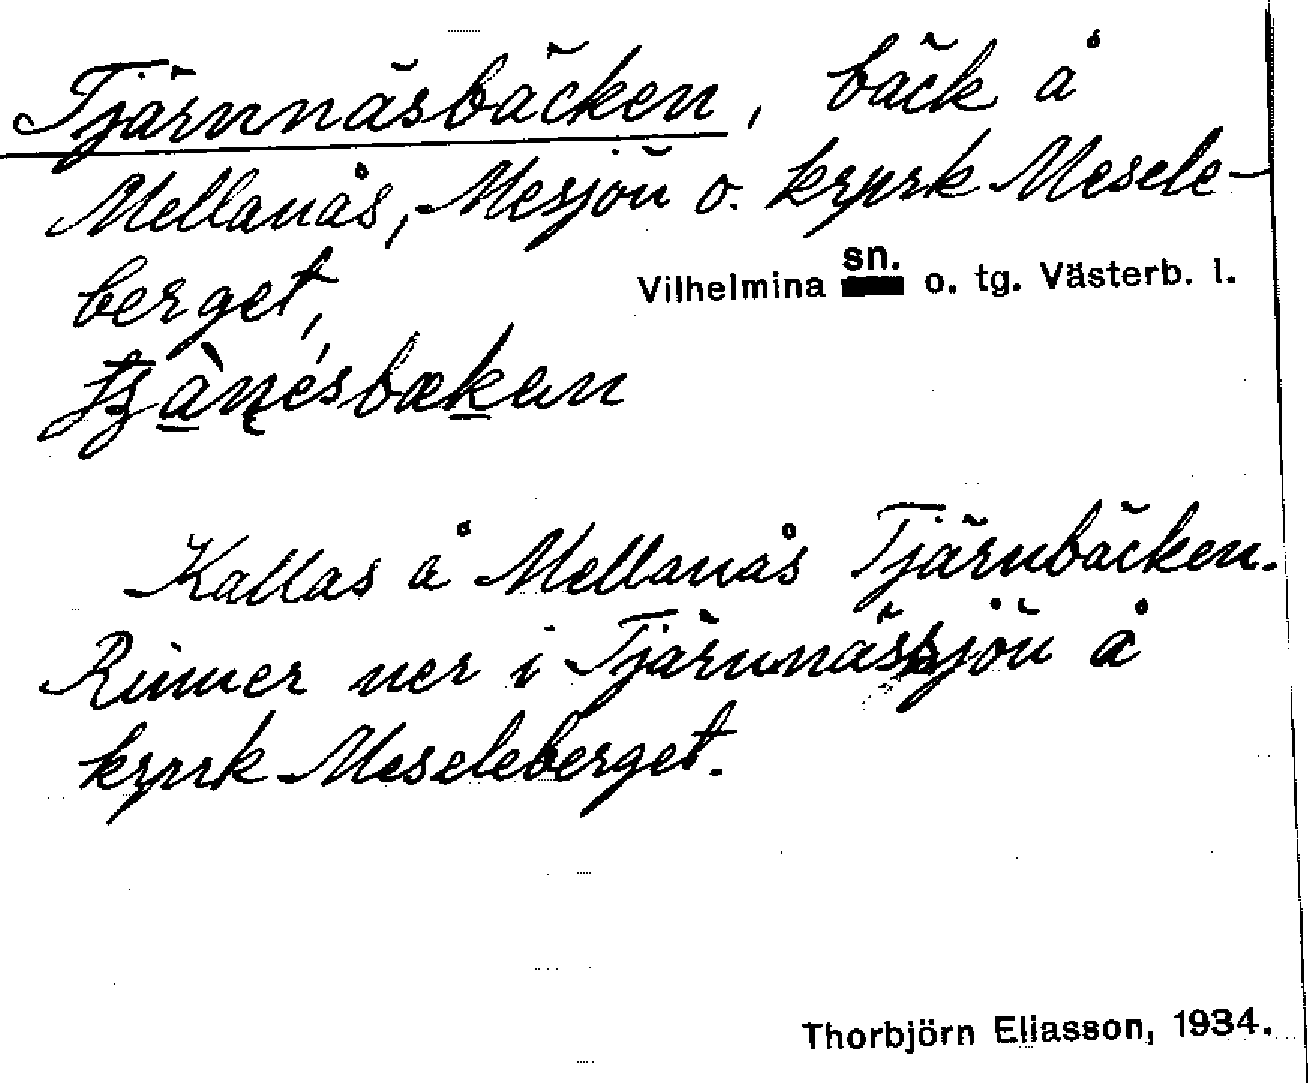 Tjärnnäsbäcken, bäck å
Mellanås, Mesjön o. kyrk Mesele-
berget,
Vilhelmina sn. o. tg. Västerb. l.
Kallas å Mellanås Tjärnbäcken.
Rinner ner i Tjärnnässjön å
kyrk Meseleberget.
Thorbjörn Eliasson, 1934.